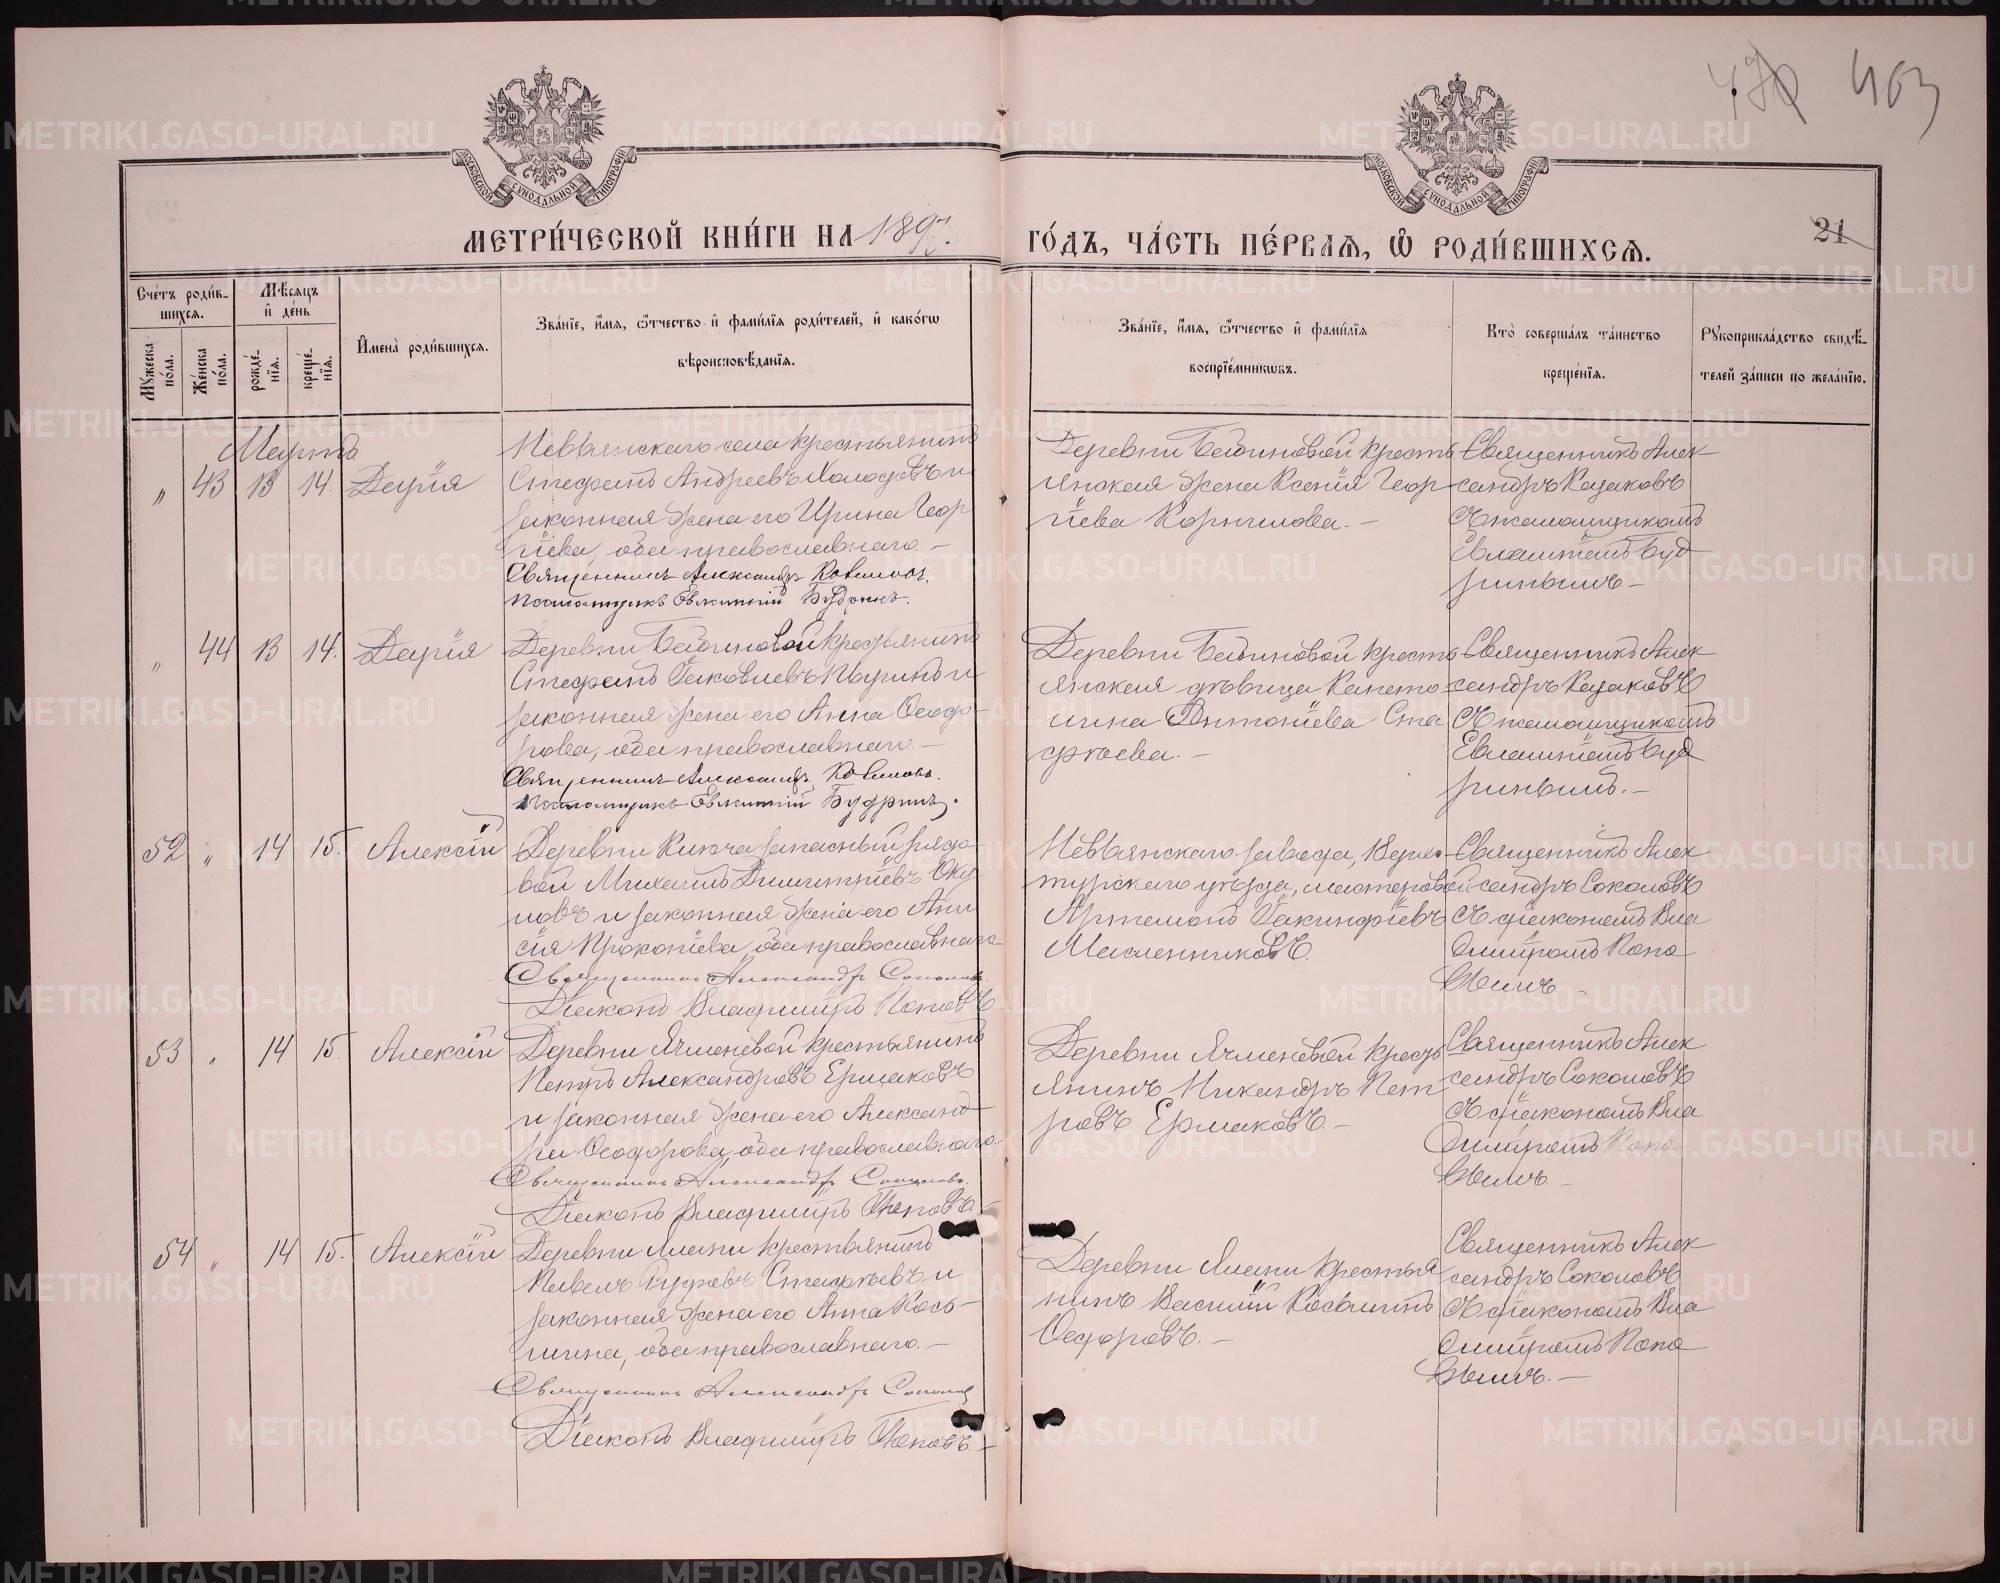 463
21
МЕТРИ́ЧЕСКОЙ КНИ́ГИ НА 1897.
ГО́ДЪ, ЧА́СТЬ ПЕ́РВАѦ, Ѡ҆ РОДИ́ВШИХСѦ.
Сче́тъ роди́в-
шихсѧ.
Мꙋ́жеска по́ла.
Же́нска по́ла.
Мѣ́сѧцъ и҆ де́нь
рожде́-
нїѧ.
креще́-
нїѧ.
И҆мена̀ роди́вшихсѧ.
Зва́нїе, и҆́мѧ, ѻ҆́тчество и҆ фами́лїѧ роди́телей, и҆ како́гѡ
вѣроисповѣ́данїѧ.
Зва́нїе, и҆́мѧ, ѻ҆́тчество и҆ фами́лїѧ
воспрїе́мникѡвъ.
Кто̀ соверша́лъ та́инство
креще́нїѧ.
Рꙋкоприкла́дство свидѣ́-
телей за́писи по жела́нїю.
Марта
„ 43 13 14. Дарія
Невьянскаго села крестьянинъ
Стефанъ Андреевъ Холодовъ и
законная жена его Ирина Геор
гіева, оба православнаго. –
Священникъ Александръ Казаковъ.
Псаломщикъ Евлампій Будринъ.
Деревни Бобиновой кресть
янская жена Ксенія Геор
гіева Корнилова. –
Священникъ Алек
сандръ Казаковъ
съ псаломщикомъ
Евлампіемъ Буд
ринымъ –
„ 44 13 14. Дарія
Деревни Бобиновой крестьянинъ
Стефанъ Іаковлевъ и
законная жена его Анна Ѳеодо
рова, оба православнаго. –
Священникъ Александръ Казаковъ.
Псаломщикъ Евлампій Будринъ.
Деревни Бобиновой кресть
янская дѣвица Капито
лина Антоніева Ста
фѣева. –
Священникъ Алек
сандръ Казаковъ
съ псаломщикомъ
Евлампіемъ Буд
ринымъ. –
52 „ 14 15. Алексій
Деревни Ключа запасный рядо
вой Михаилъ Димитріевъ Оку
ловъ и законная жена его Ани
сія Прокопіева, оба православнаго
Священникъ Александръ Соколовъ
Діаконъ Владиміръ Поповъ
Невьянскаго завода, Верхо
турскаго уѣзда, мастеровой
Артемонъ Іакинфіевъ
Масленниковъ.
Священникъ Алек
сандръ Соколовъ
съ діакономъ Вла
диміромъ Попо
вымъ –
53 „ 14 15. Алексій
Деревни Ячменевой крестьянинъ
Петръ Александровъ Ермаковъ
и законная жена его Александ
ра Ѳеодорова, оба православнаго.
Священникъ Александръ Соколовъ.
Діаконъ Владиміръ Поповъ –
Деревни Ячменевой кресть
янинъ Никандръ Пет
ровъ Ермаковъ. –
Священникъ Алек
сандръ Соколовъ
съ діакономъ Вла
диміромъ Попо
вымъ –
54 „ 14 15. Алексій
Деревни Ялани крестьянинъ
Павелъ Руфовъ Стафѣевъ и
законная жена его Анна Кось
мина, оба православнаго. –
Священникъ Александръ Соколовъ
Діаконъ Владиміръ Поповъ. –
Деревни Ялани крестья
нинъ Василій Косьминъ
Ѳедоровъ. –
Священникъ Алек
сандръ Соколовъ
съ діакономъ Вла
диміромъ Попо
вымъ. –
METRIKI.GASO-URAL.RU